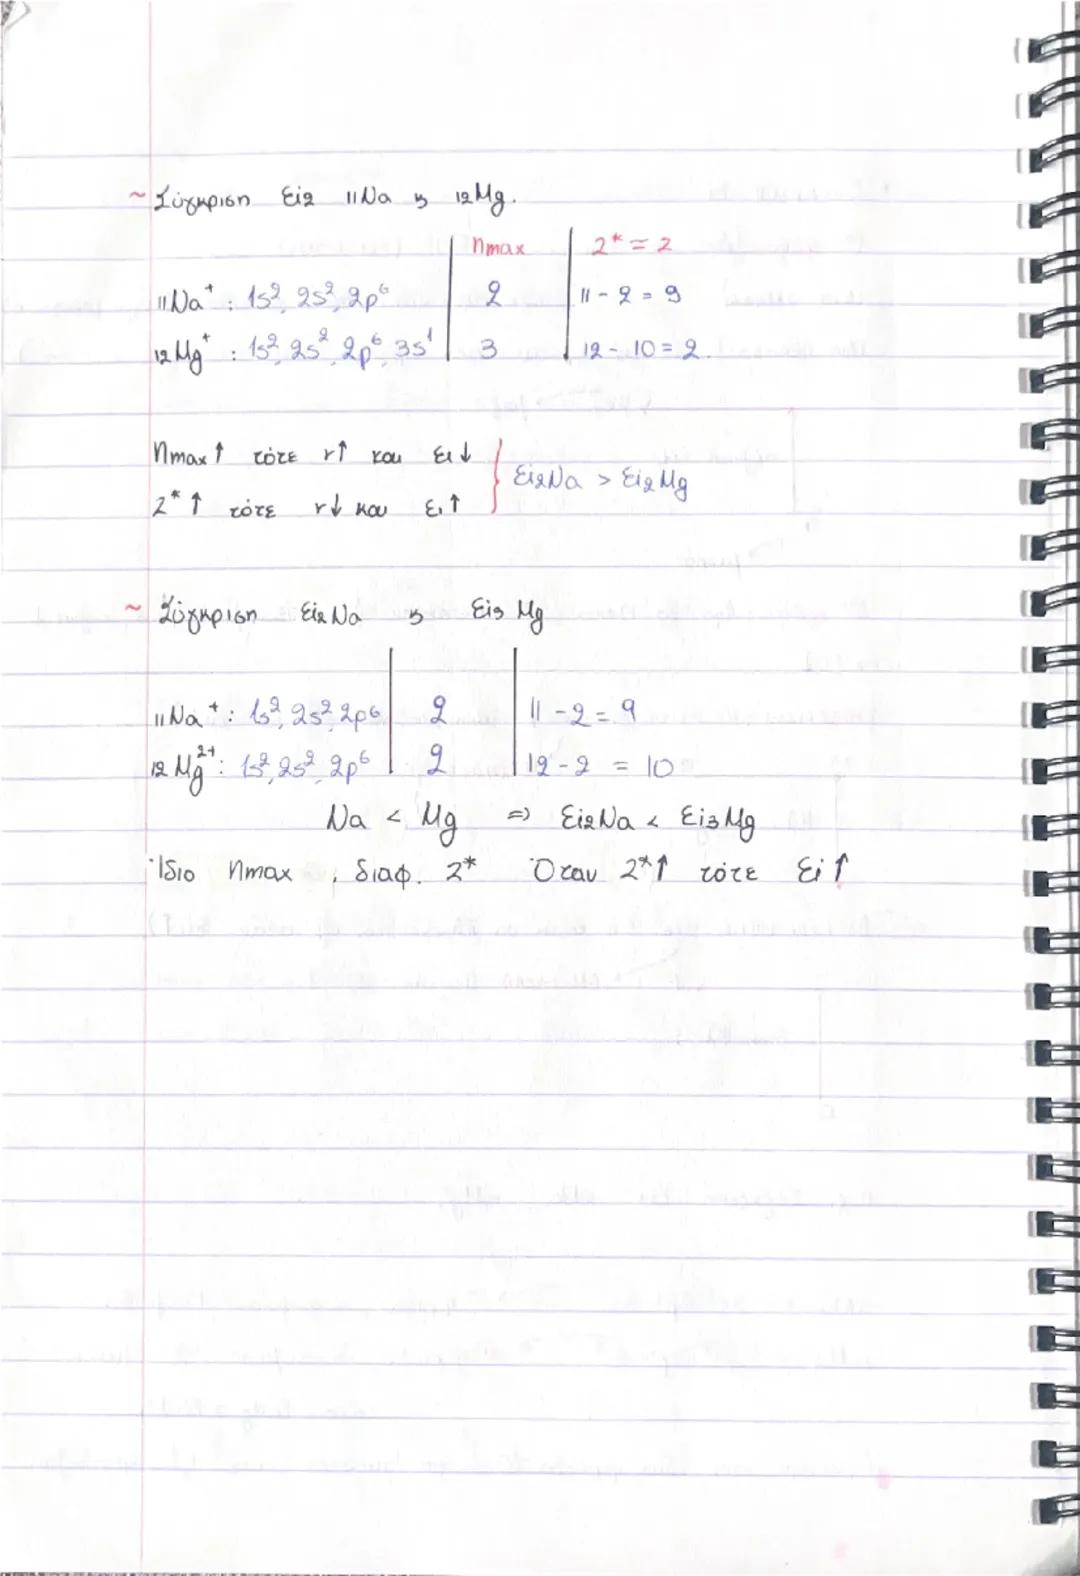 ~ Σύγκριση Ei2 11Na ις 12Mg.
nmax Z* = Z
11Na⁺ : 1s², 2s², 2p⁶ 2 11 - 2 = 9
12Mg⁺ : 1s², 2s², 2p⁶, 3s¹ 3 12 - 10 = 2.
nmax ↑ τότε r↑ και Ei ↓
Ei2Na > Ei2Mg
Z* ↑ τότε r↓ και Ei ↑
~ Σύγκριση Ei2 Na ις Ei3 Mg
11Na⁺ : 1s², 2s², 2p⁶ 2 11 - 2 = 9
12Mg²⁺ : 1s², 2s², 2p⁶ 2 12 - 2 = 10
Na < Mg ⇒ Ei2Na < Ei3Mg
Ίδιο nmax, διαφ. Z* Όταν Z*↑ τότε Ei ↑